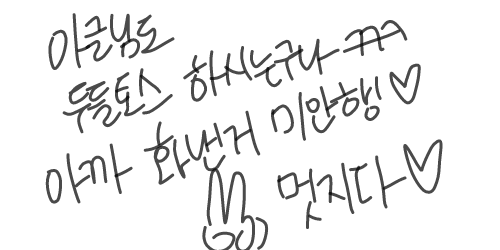 이글님도
두들토스 하시는구나 ㅋㅋㅋ
아까 화낸거 미안행♡
멋지다♡